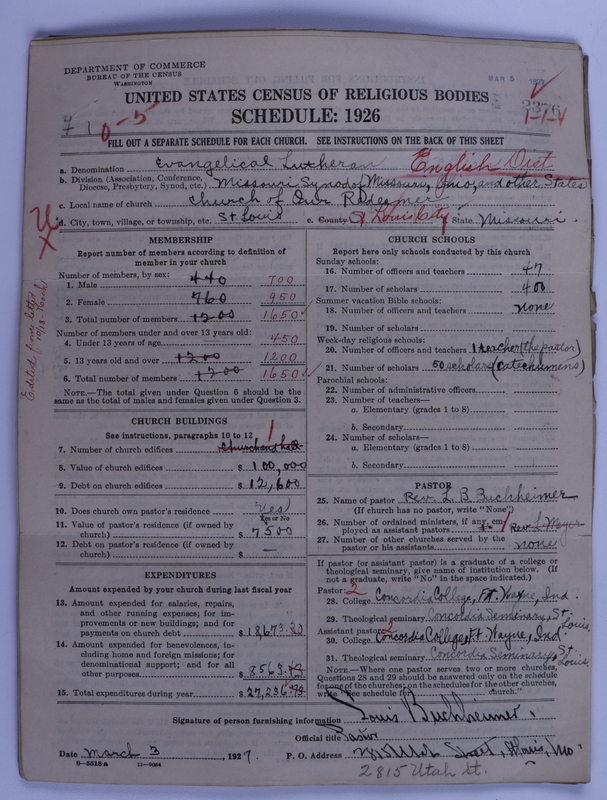 DEPARTMENT OF COMMERCE
BUREAU OF THE CENSUS
WASHINGTON
MAR 5
2276
1-1-V
UNITED STATES CENSUS OF RELIGIOUS BODIES
SCHEDULE: 1926
0-5
FILL OUT A SEPARATE SCHEDULE FOR EACH CHURCH. SEE INSTRUCTIONS ON THE BACK OF THIS SHEET
a. Denomination Evangelical Lutheran English Dist
b. Division (Association, Conference, Diocese, Presbytery, Synod, etc.) Missouri Synod of Missouri, Ohio, and other States
c. Local name of church Church of Our Redeemer
d. City, town, village, or township, etc. St Louis e. County St Louis City State Missouri.
Edited from letter
MEMBERSHIP
Report number of members according to definition of
member in your church
Number of members, by sex:
1. Male 440 700
2. Female 760 950
3. Total number of members 1200 1650
Number of members under and over 13 years old:
4. Under 13 years of age 450
5. 13 years old and over 1200 1200
6. Total number of members 1200 1650
NOTE.—The total given under Question 6 should be the
same as the total of males and females given under Question 3.
CHURCH BUILDINGS
See instructions, paragraphs 10 to 12
7. Number of church edifices Church and hall 1
8. Value of church edifices $ 100,000
9. Debt on church edifices $ 12,600
10. Does church own pastor's residence Yes
Yes or No
11. Value of pastor's residence (if owned by
church) $ 7500
12. Debt on pastor's residence (if owned by
church) $ —
EXPENDITURES
Amount expended by your church during last fiscal year
13. Amount expended for salaries, repairs,
and other running expenses; for im-
provements or new buildings; and for
payments on church debt $ 18,673.
14. Amount expended for benevolences, in-
cluding home and foreign missions; for
denominational support; and for all
other purposes $ 8563.
15. Total expenditures during year $ 27,236.
CHURCH SCHOOLS
Report here only schools conducted by this church
Sunday schools:
16. Number of officers and teachers 47
17. Number of scholars 400
Summer vacation Bible schools:
18. Number of officers and teachers none
19. Number of scholars
Week-day religious schools:
20. Number of officers and teachers 1 teacher (the pastor)
21. Number of scholars 50 scholars (Catechumens)
Parochial schools:
22. Number of administrative officers
23. Number of teachers—
a. Elementary (grades 1 to 8)
b. Secondary
24. Number of scholars—
a. Elementary (grades 1 to 8)
b. Secondary
PASTOR
25. Name of pastor Rev. L. B. Buchheimer
(If church has no pastor, write "None")
26. Number of ordained ministers, if any, em-
ployed as assistant pastors 1 Rev. L. Meyer
27. Number of other churches served by the
pastor or his assistants none
If pastor (or assistant pastor) is a graduate of a college or
theological seminary, give name of institution below. (If
not a graduate, write "No" in the space indicated.)
Pastor: 2
28. College Concordia College, Ft. Wayne, Ind.
29. Theological seminary Concordia Seminary, St. Louis
Assistant pastor: 2
30. College Concordia College, Ft. Wayne, Ind.
31. Theological seminary Concordia Seminary, St Louis.
NOTE.—Where one pastor serves two or more churches,
Questions 28 and 29 should be answered only on the schedule
for one of the churches; on the schedules for the other churches,
write "See schedule for church."
Signature of person furnishing information Louis Buchheimer,
Official title Pastor
Date March 3, 1927. P. O. Address 2815 Utah Street, St Louis, Mo.
6—5518 a 11—9034
2815 Utah St.